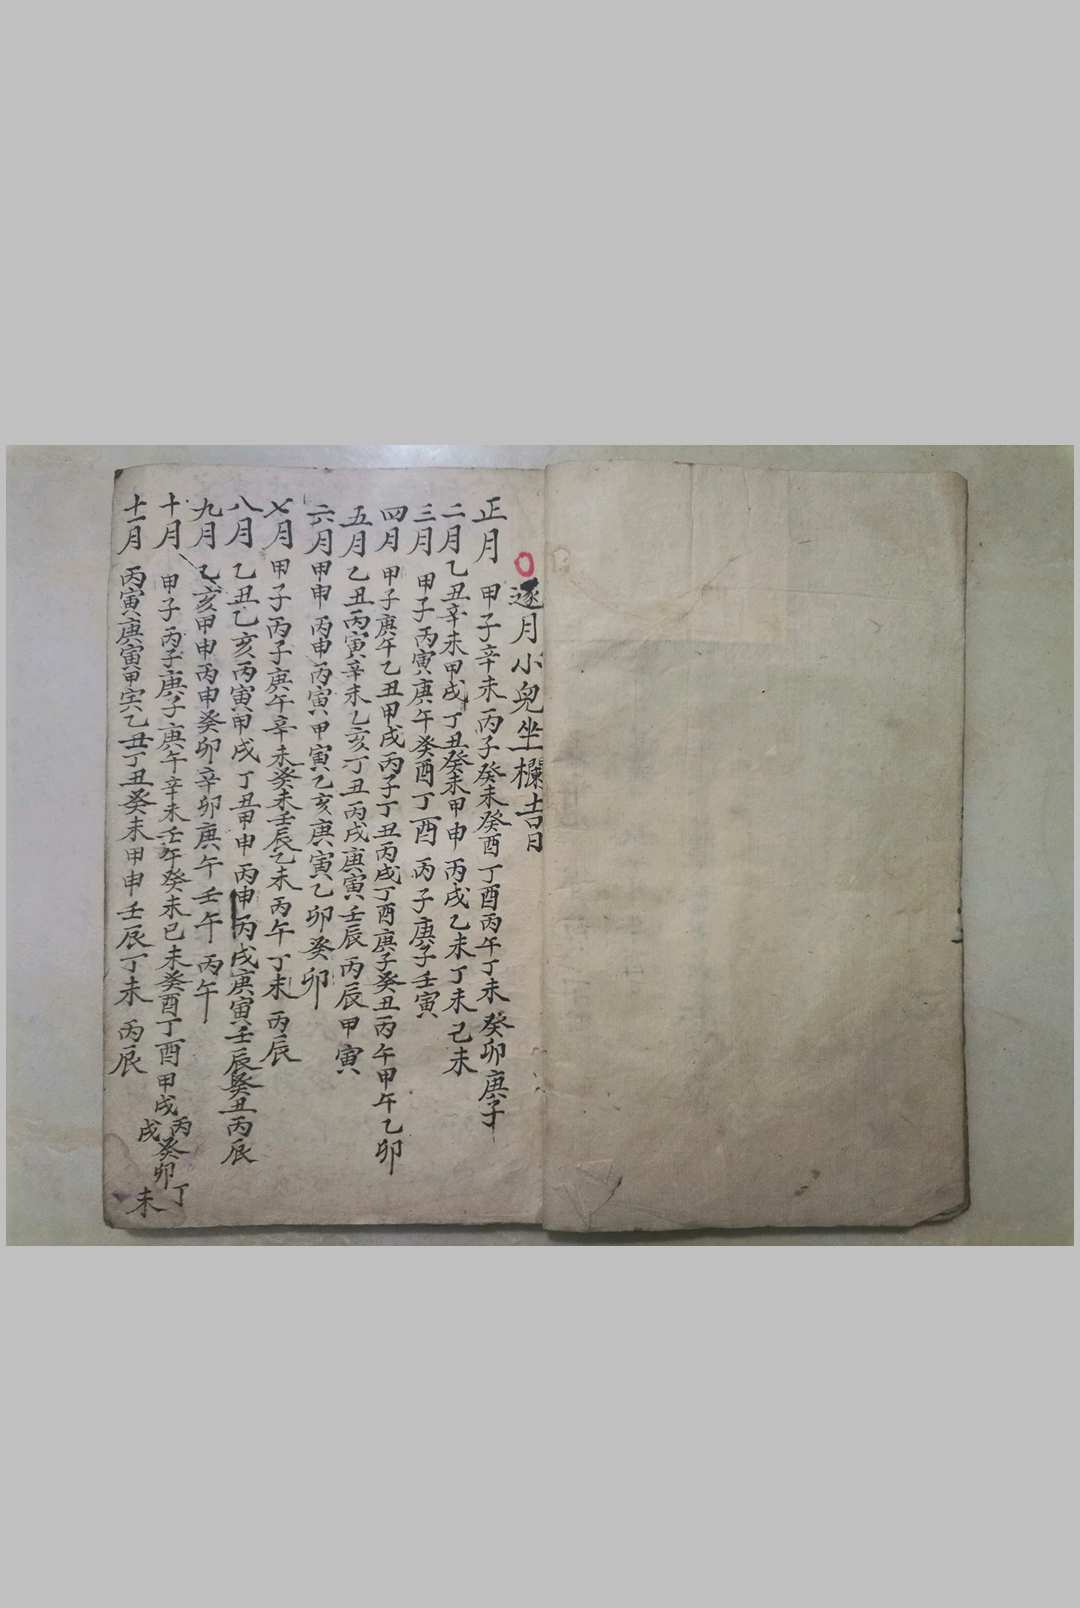 逐月小兒坐欄吉日
正月 甲子辛未丙子癸未癸酉丁酉丙午丁未癸卯庚子
二月乙丑辛未甲戌丁丑癸未甲申丙戌乙未丁未己未
三月甲子丙寅庚午癸酉丁酉丙子庚子壬寅
四月甲子庚午乙丑甲戌丙子丁丑丙戌丁酉庚子癸丑丙午甲午乙卯
五月乙丑丙寅辛未乙亥丁丑丙戌庚寅壬辰丙辰甲寅
六月甲申丙申丙寅甲寅乙亥庚寅乙卯癸卯
七月甲子丙子庚午辛未癸未壬辰乙未丙午丁未丙辰
八月乙丑乙亥丙寅甲戌丁丑甲申丙申丙戌庚寅壬辰癸丑丙辰
九月乙亥甲申丙申癸卯辛卯庚午壬午丙午
十月甲子丙子庚子庚午辛未壬午癸未已未癸酉丁酉甲戌丙戌癸卯丁未
十一月丙寅庚寅甲寅乙丑丁丑癸未甲申壬辰丁未丙辰